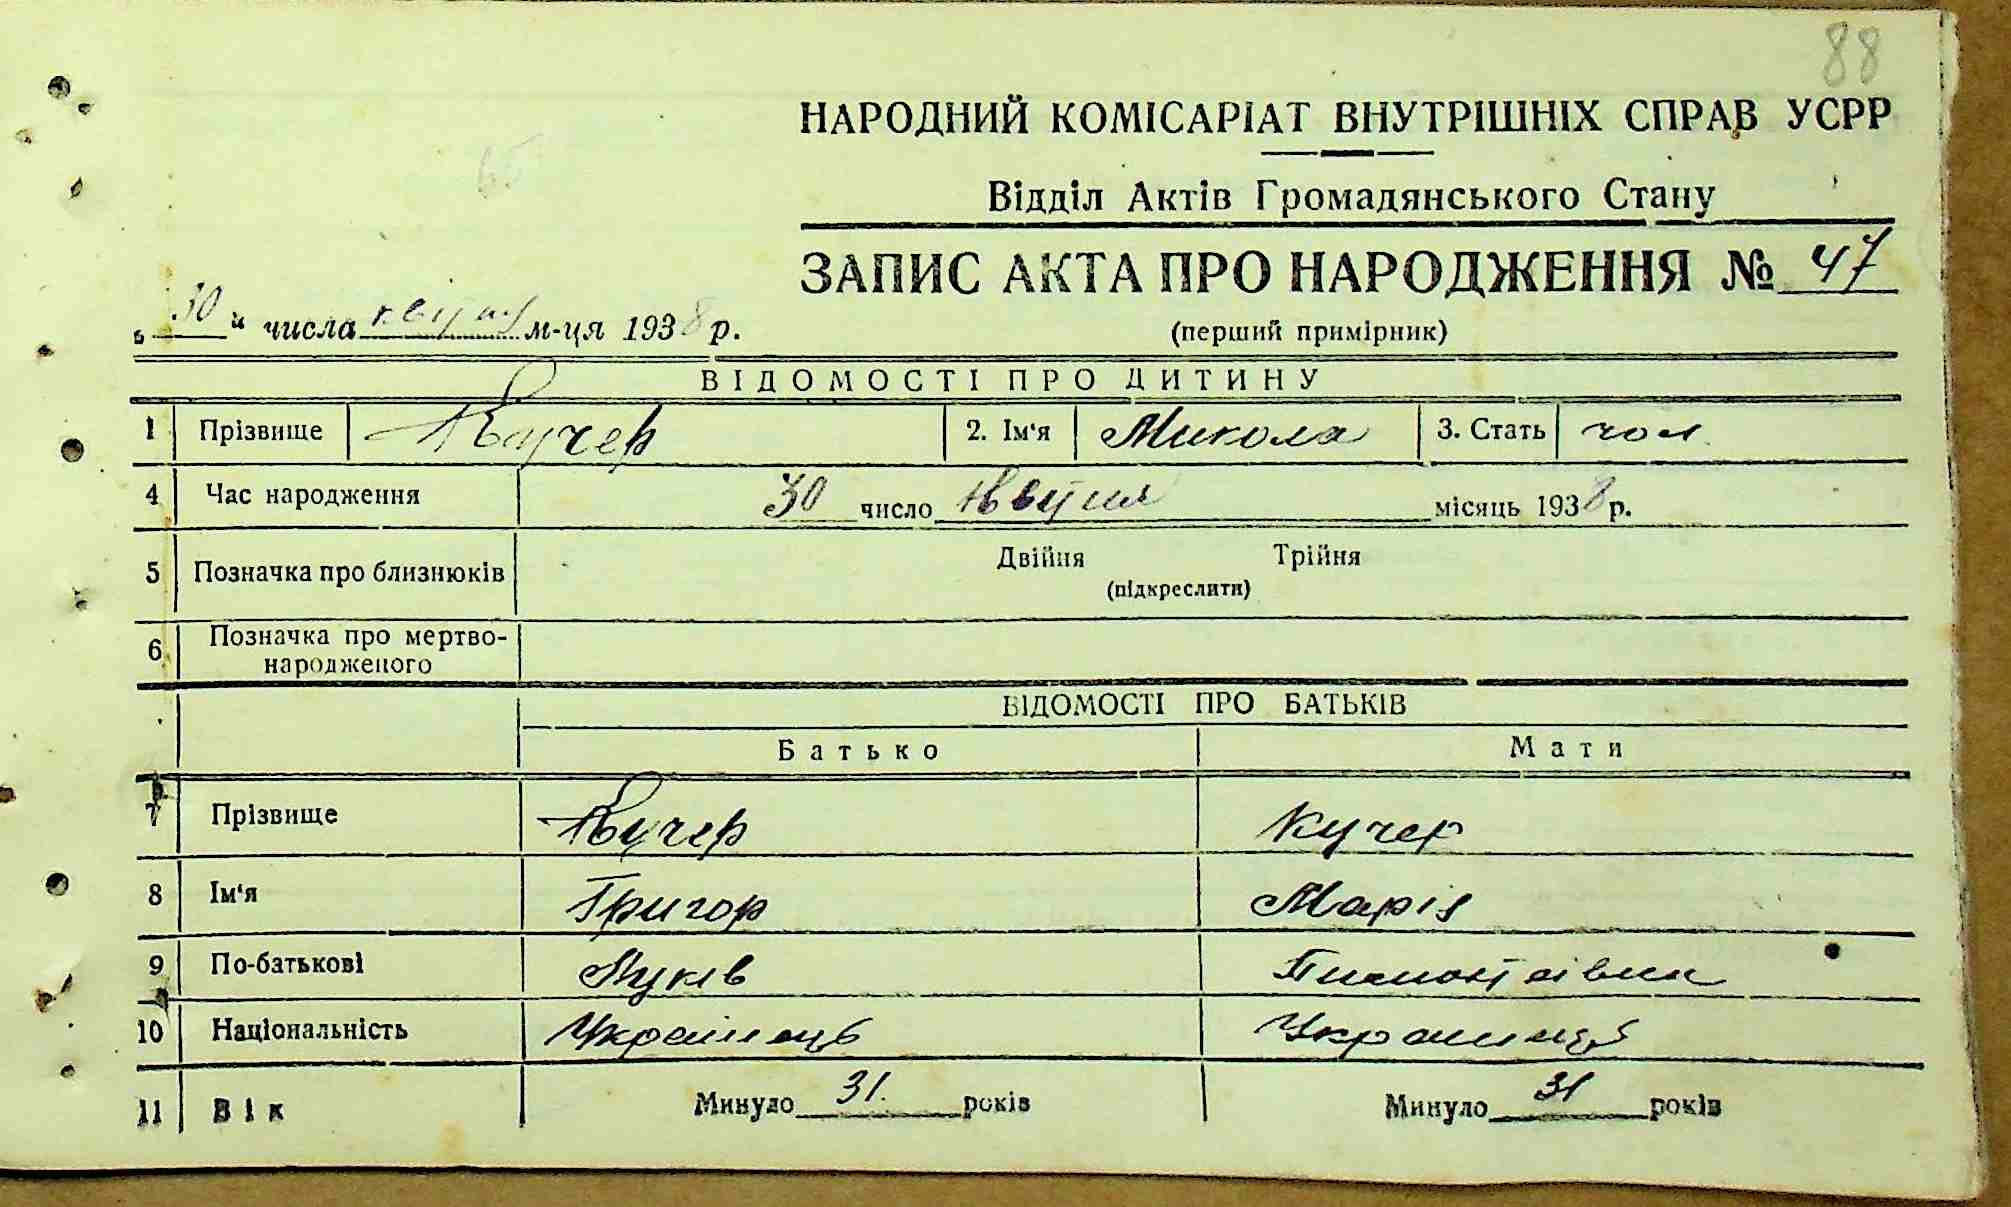 88
65
НАРОДНИЙ КОМІСАРІАТ ВНУТРІШНІХ СПРАВ УСРР
Відділ Актів Громадянського Стану
ЗАПИС АКТА ПРО НАРОДЖЕННЯ № 47
„30“ числа квітня м-ця 1938 р.
(перший примірник)
ВІДОМОСТІ ПРО ДИТИНУ
1 Прізвище Кучер 2. Ім'я Микола 3. Стать чол.
4 Час народження 30 число квітня місяць 1938 р.
5 Позначка про близнюків Двійня Трійня
(підкреслити)
6 Позначка про мертво-
народженого
ВІДОМОСТІ ПРО БАТЬКІВ
Батько Мати
7 Прізвище Кучер Кучер
8 Ім'я Григор Марія
9 По-батькові Луків
10 Національність Українець Украинця
11 Вік Минуло 31. років Минуло 31 років